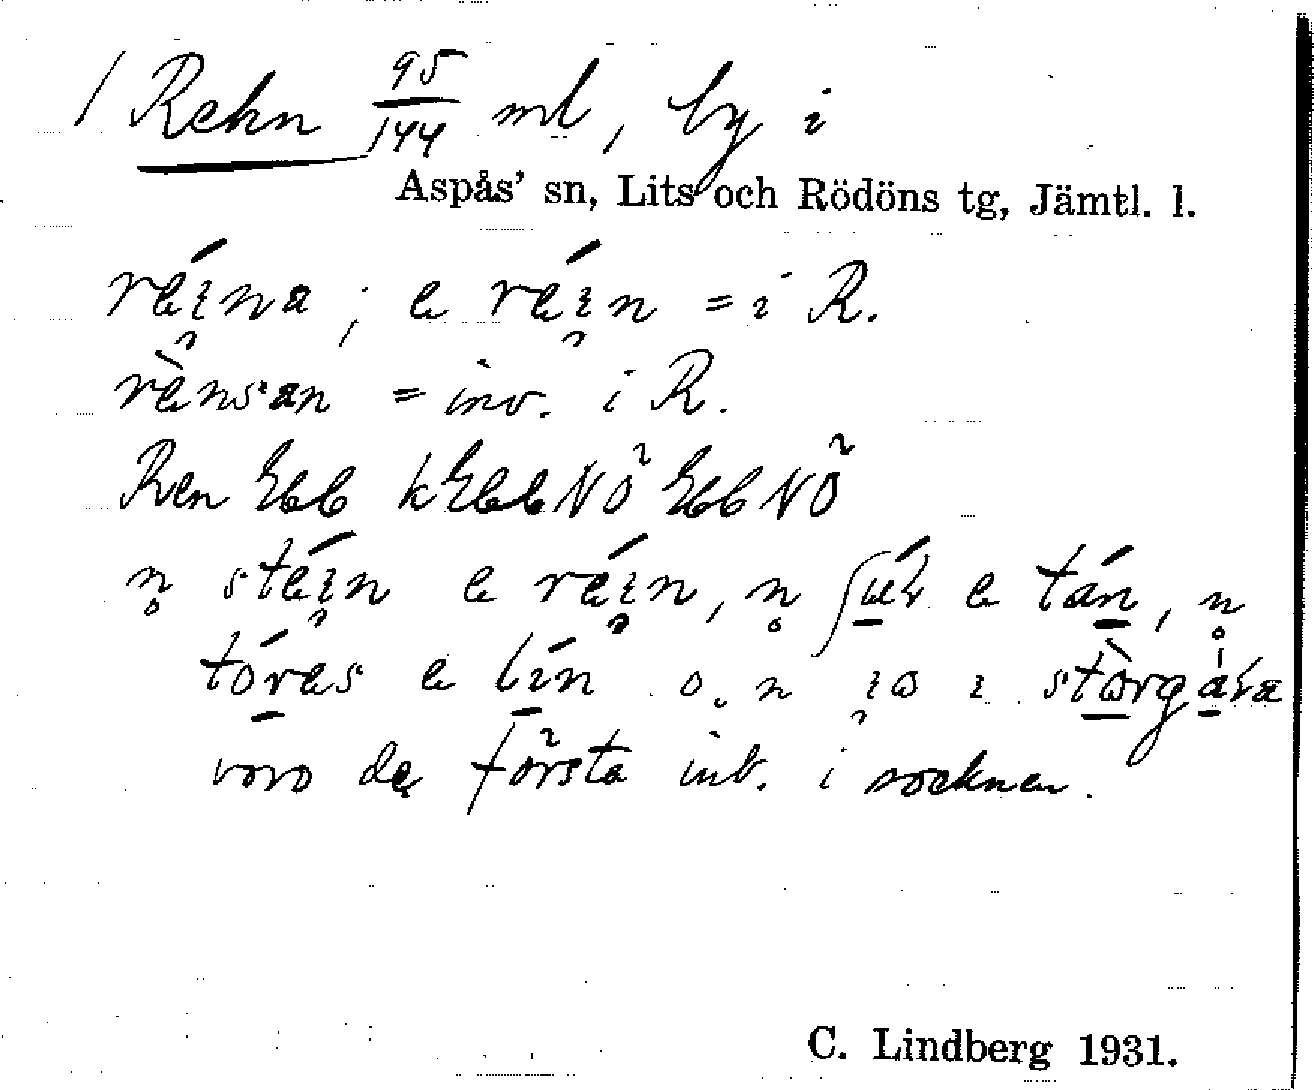 / Rehn 95/144 ml, by i
Aspås' sn, Lits och Rödöns tg, Jämtl. l.
réina; e réin = i R.
rènsan = inv. i R.
Ren
n stéin e réin, n ʃúr e tán, n
tóres e lín o, n i stòrgára
voro de första inb. i socknen.
C. Lindberg 1931.